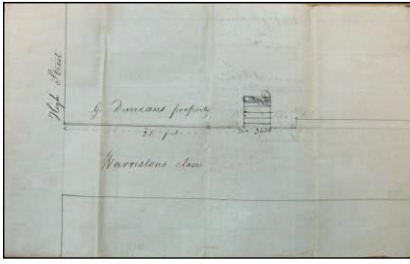 High Street
G Duncans property
26 feet
Warristons close